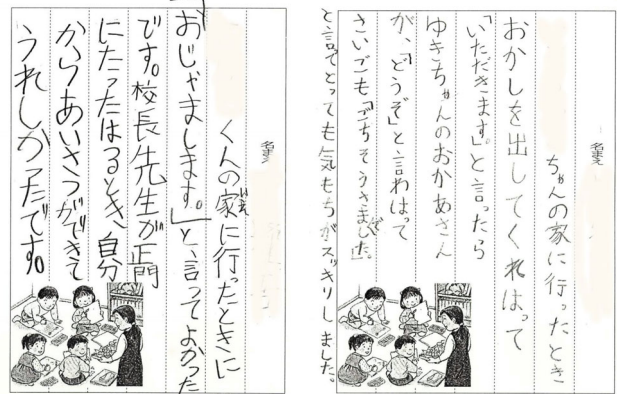 名まえ
ちゃんの家に行ったとき
おかしを出してくれはって
「いただきます。」と言ったら
ゆきちゃんのおかあさん
が、「どうぞ」と言わはって
さいごも「ごちそうさまでした。」
と言ってとっても気もちがスッキリしました。
名まえ
くんの家に行ったときに
いえ
「おじゃまします。」と、言ってよかった
です。校長先生が正門
にたったはるとき、自分
からあいさつができて
うれしかったです。